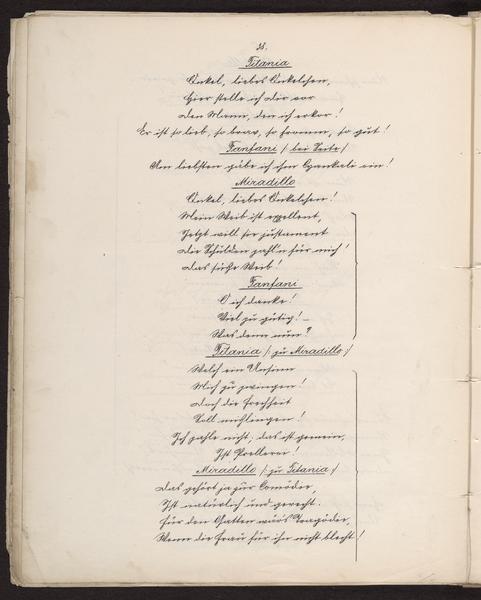 Titania
Onkel, liebes Onkelchen,
Hier stelle ich dir vor
Den Mann, den ich erkor!
Er ist so lieb, so brav, so fromm, so gut!
Fanfani /: bei Seite :/
Am liebsten gäbe ich ihm Cyankali ein!
Miradillo
Onkel, liebes Onkelchen!
Mein Weib ist exzellent,
Jetzt will sie justament
Die Schulden zahl'n für mich!
Das süße Weib!
Fanfani
O ich danke!
Viel zu gütig! _
Was denn nun?
Titania /: zu Miradillo :/
Welch ein Unsinn
Mich zu zwingen!
Doch die Frechheit
Soll misslingen!
Ich zahle nicht, das ist gemein,
Ist Prellerei!
Miradillo /: zu Titania :/
Das gehört ja zur Comödie,
Ist natürlich und gerecht.
Für den Gatten wär's Tragödie,
Wenn die Frau für ihn nicht blecht!